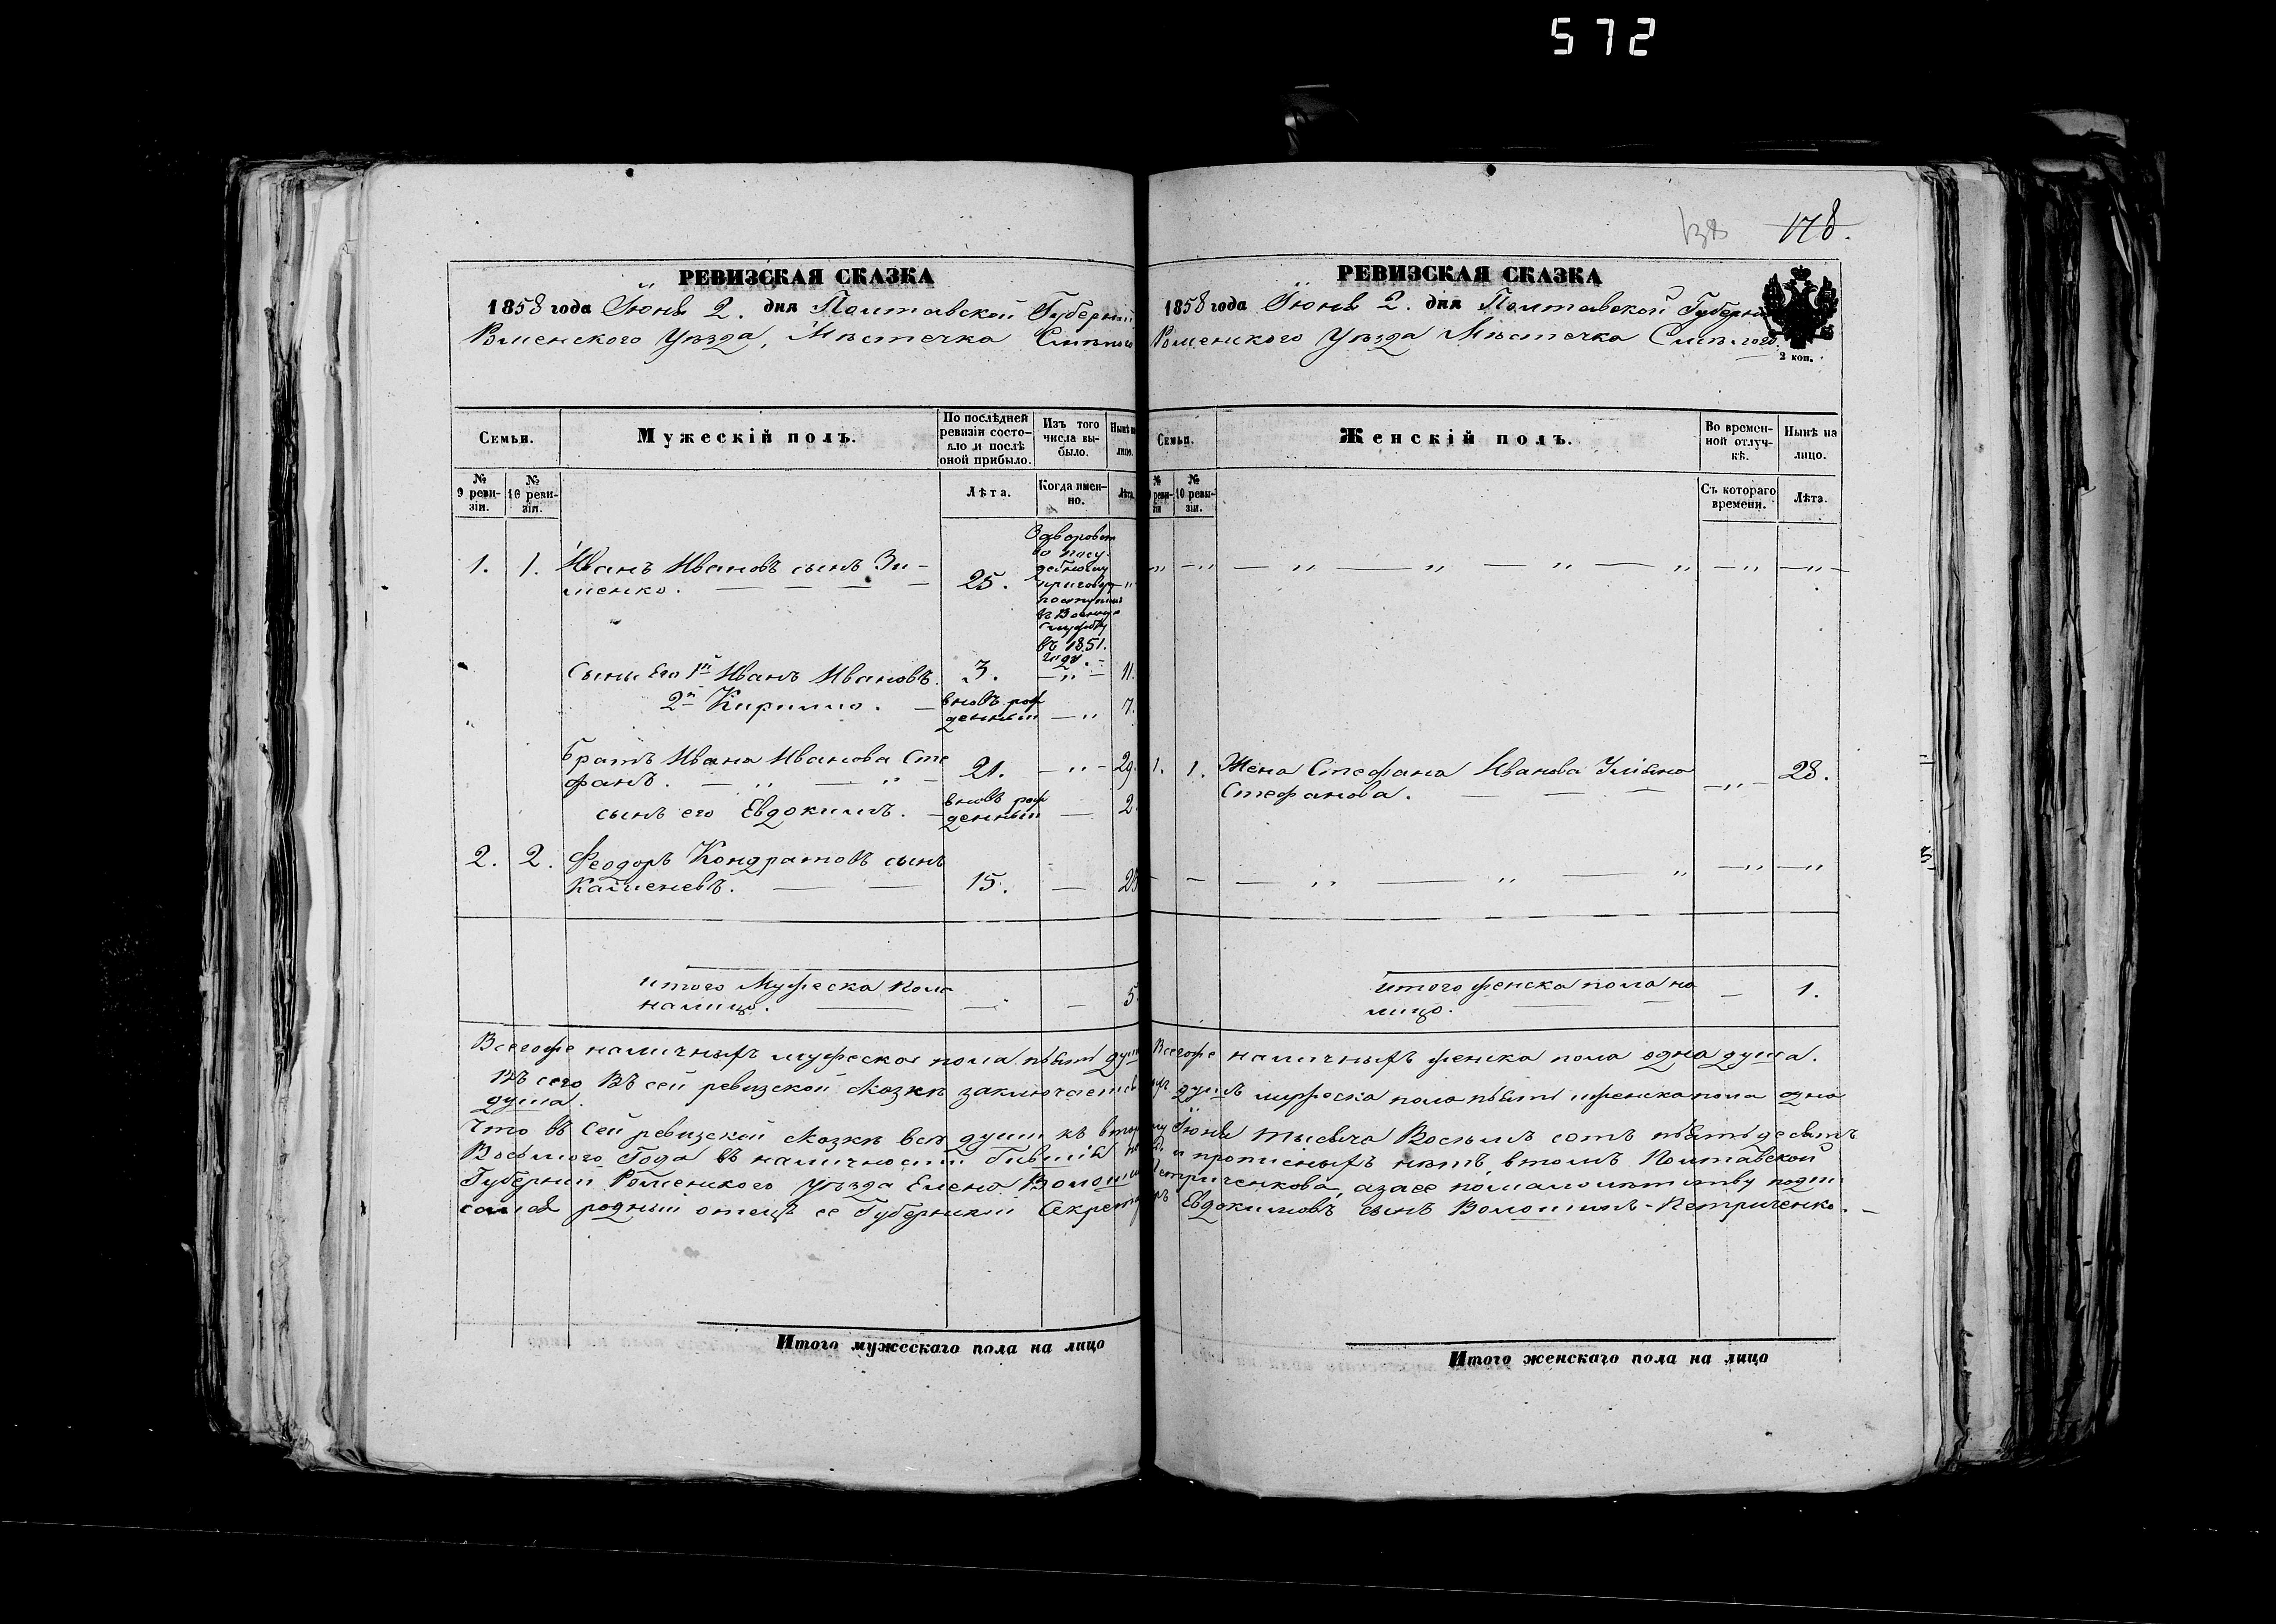 572
138 178.
РЕВИЗСКАЯ СКАЗКА
1858 года Іюня 2. дня Полтавской Губерніи
Роменского Уѣзда, Мѣстечка Смѣлого
Семьи.
Мужескій полъ.
По послѣдней ревизіи состояло и послѣ оной прибыло.
Изъ того числа выбыло.
Нынѣ на лицо.
№ 9 ревизіи.
№ 10 ревизіи.
Лѣта.
Когда именно.
Лѣта.
1. 1. Иванъ Ивановъ сынъ Зи-
менко. 25.
За воровство по судебному приговору поступилъ въ Военную службу въ 1851. году.
Сыны Его 1й Иванъ Ивановъ. 3. — „ — 11.
2й Кирилло. — вновь рожденный — „ 7.
Братъ Ивана Иванова Сте
фанъ. — „ — „ — 21. — „ — 29.
сынъ его Евдокимъ. — вновь рожденный — 2
2. 2. Феодоръ Кондратовъ сынъ
Каменевъ. — — 15. — 23
итого Мужеска пола
налицо. — — — 5
Всегоже наличныхъ мужеска пола пять душ
Въ сей ревизской сказкѣ заключается
душа.
Что въ сей ревизской сказкѣ всѣ души къ втор
Восьмого Года въ наличности бывшія
Губерніи Роменского уѣзда Елена Волошин
сался родный отецъ ее Губернскій Секретар
Итого мужескаго пола на лицо
РЕВИЗСКАЯ СКАЗКА
1858 года Іюня 2. дня Полтавской Губерніи
Роменского Уѣзда Мѣстечка Смѣлого.
2 коп.
Семьи.
Женскій полъ.
Во временной отлучкѣ.
Нынѣ на лицо.
№ 9 ревизіи
№ 10 ревизіи.
Съ котораго времени.
Лѣта.
1. 1. Жена Стефана Иванова Ульяна
Стефанова. — — — — „ — 28.
итого женска пола на
лицо. — — 1.
Всегоже наличныхъ женска пола одна душа.
душъ мужеска пола пять иженска пола одна
му Іюня тысяча Восемь сотъ пятьдесятъ
и прописныхъ нѣтъ, втомъ Полтавской
Петриченкова, азаее помалолѣтству подпи
Евдокимовъ сынъ Волошинъ-Петриченко. —
Итого женскаго пола на лицо